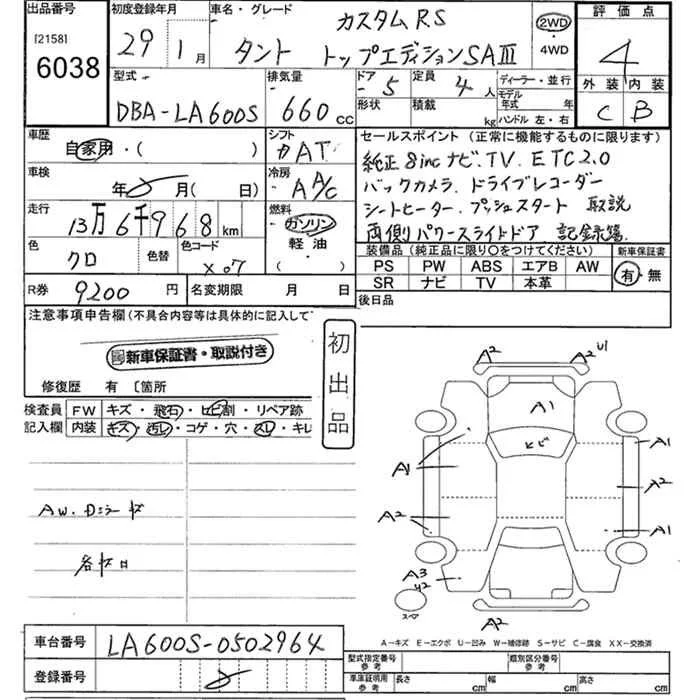 出品番号
[2158]
6038
初度登録年月
29 1月
車名・グレード
カスタムRS
タント トップエディションSAⅢ
2WD
・
4WD
評価点
4
外装 内装
C B
型式
DBA-LA600S
排気量
660cc
ドア
5
定員
4人
形状
積載
kg
ディーラー・並行
モデル年式 年
ハンドル 左・右
車歴
自家用・( )
シフト
FAT
車検
年 月( 日)
冷房
AA/C
走行
13万6千968km
燃料
ガソリン
軽油
( )
色
クロ
色替
色コード
X07
R券
9200円
名変期限 月 日
セールスポイント(正常に機能するものに限ります)
純正8incナビ.TV.ETC2.0
バックカメラ.ドライブレコーダー
シートヒーター.プッシュスタート 取説
両側パワースライドドア 記録簿
装備品(純正品に限り○をつけてください)
PS PW ABS エアB AW
SR ナビ TV 本革
新車保証書
有・無
後日品
注意事項申告欄(不具合内容等は具体的に記入して
新車保証書・取説付き
修復歴 有 〔箇所
初出品
検査員記入欄
FW キズ・飛石・ヒビ割・リペア跡
内装 キズ・汚レ・コゲ・穴・スレ・キレ
AW.Dミラーキズ
A2
A2 U1
A1
ヒビ
A1
A1
A2
A2
A1
A3
U2
スペア
A2
A-キズ E-エクボ U-凹み W-補修跡 S-サビ C-腐食 XX-交換済
車台番号
LA600S-0502964
登録番号
型式指定番号
参考
類別区分番号
参考
車庫証明用
参考
長さ cm
幅 cm
高さ cm